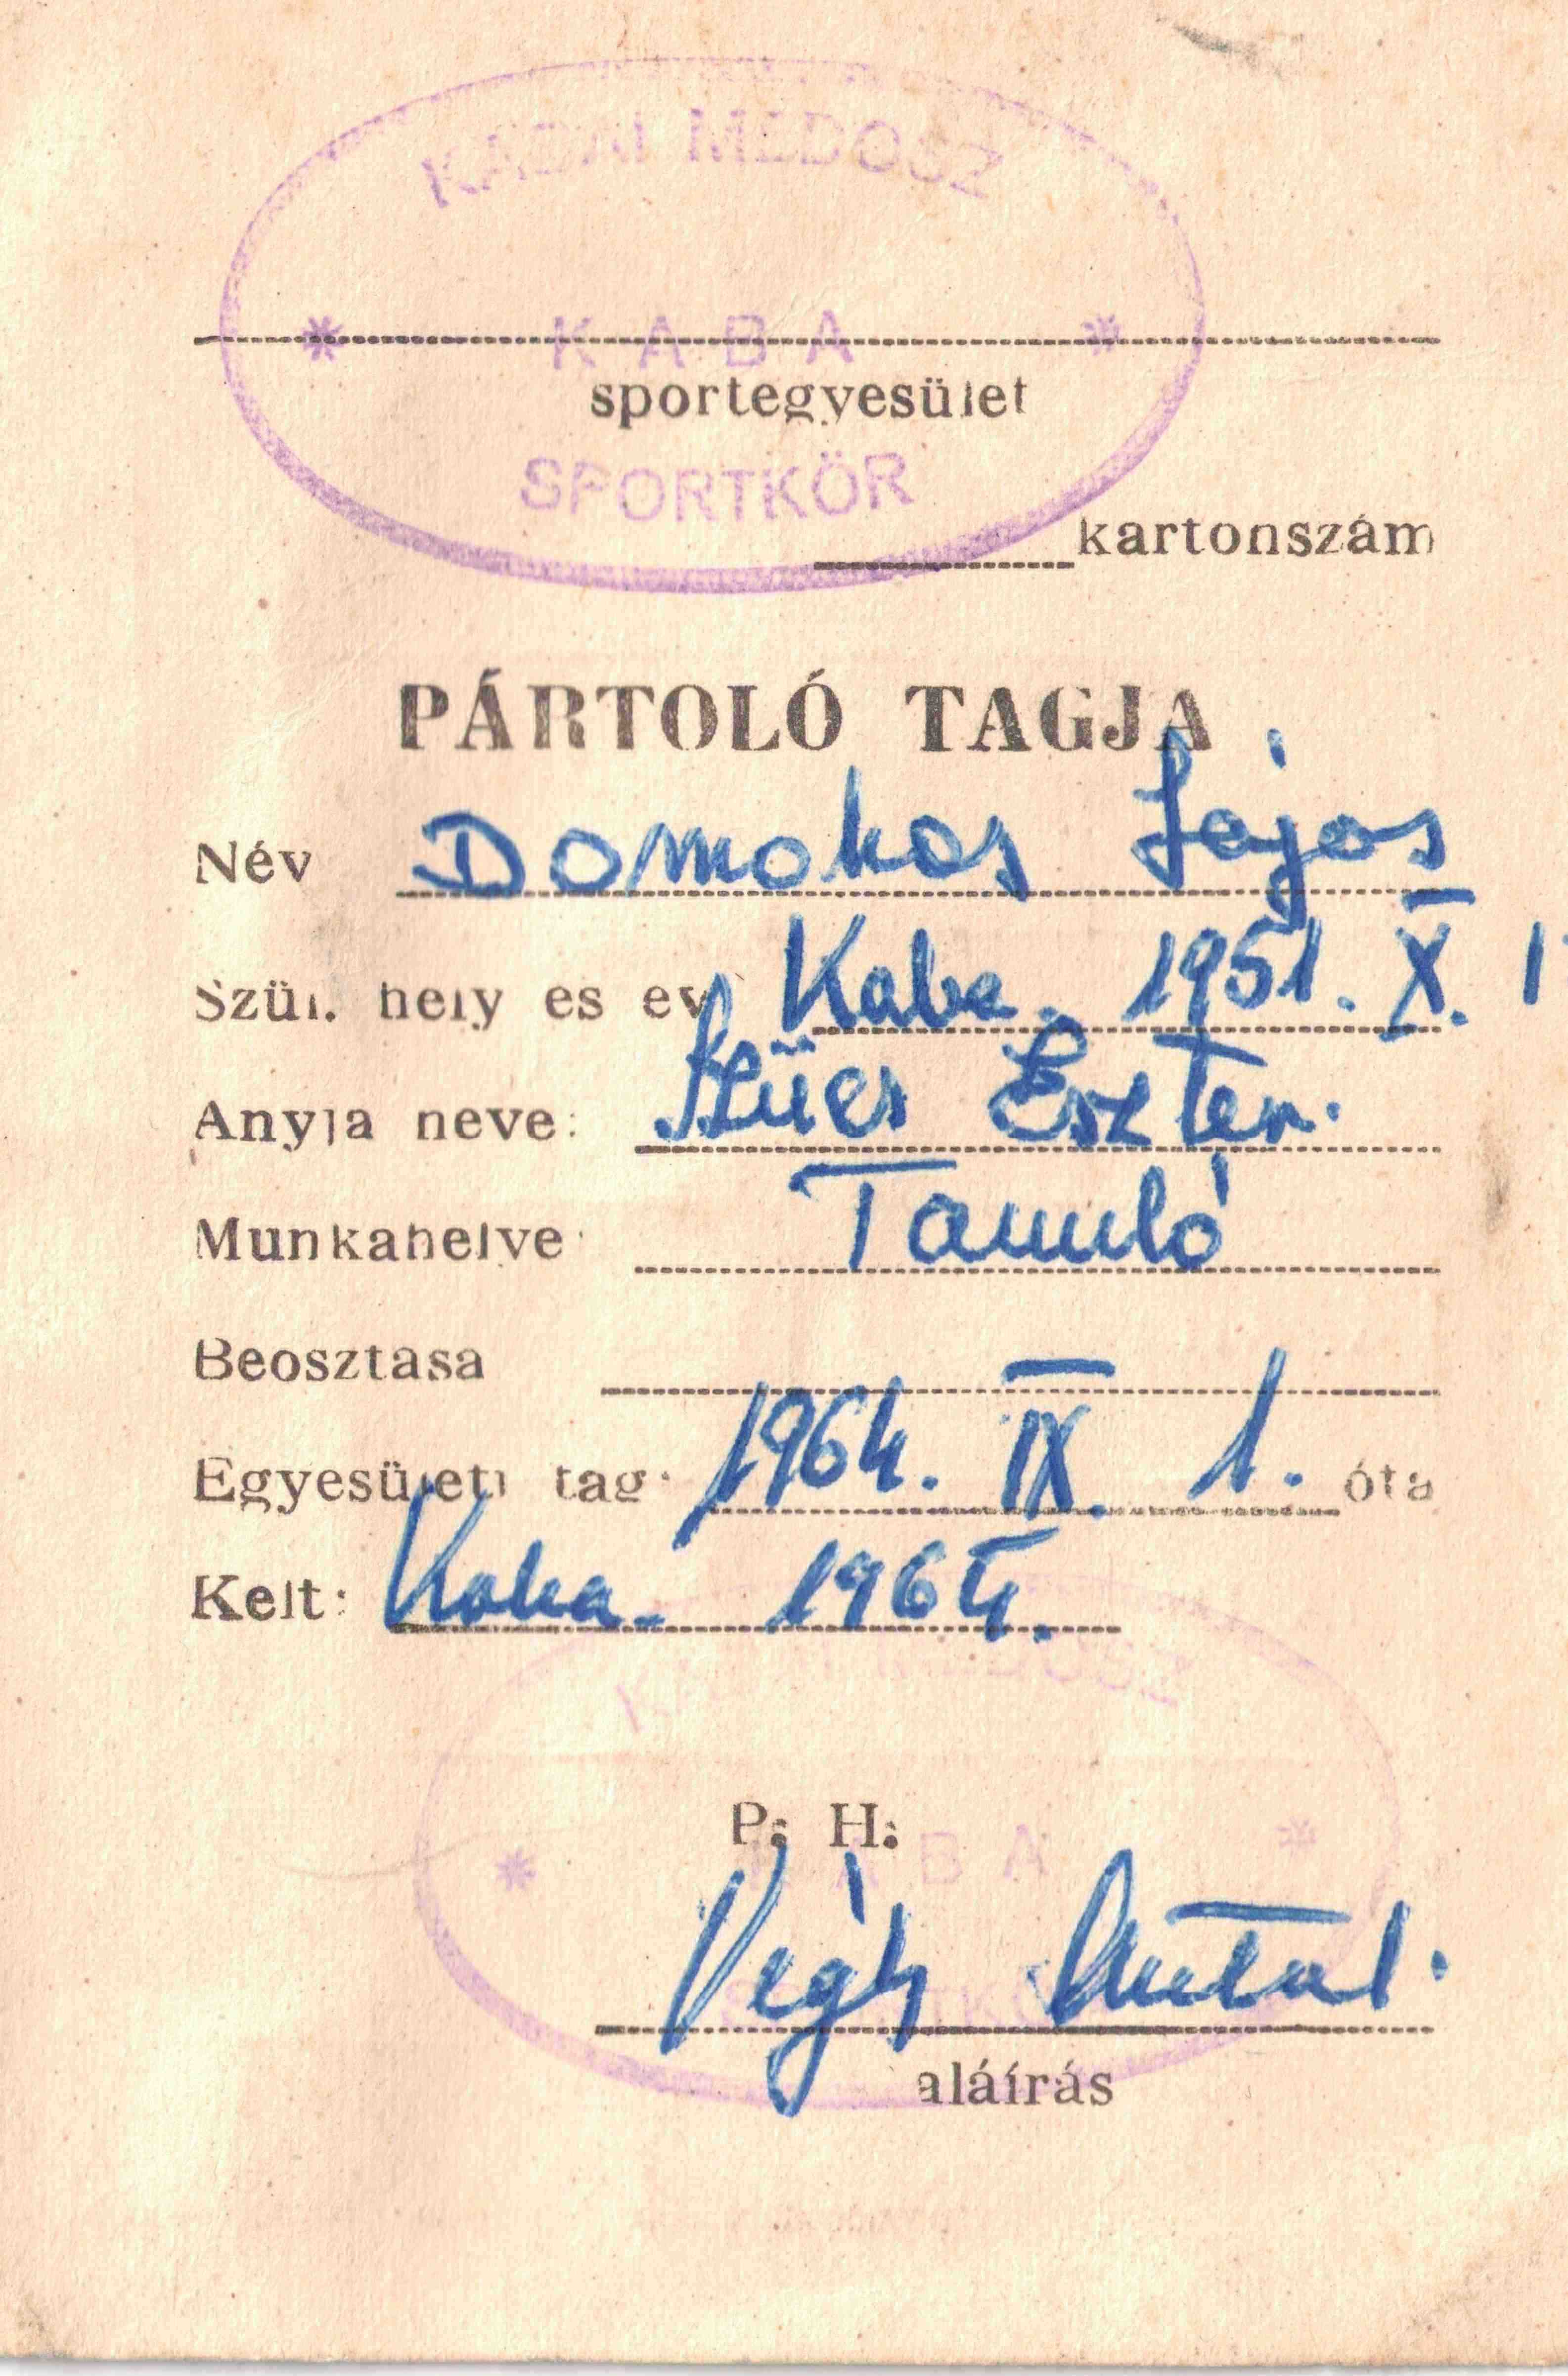 KABAI MEDOSZ
KABA
sportegyesület
SPORTKÖR
kartonszám
PÁRTOLÓ TAGJA
Név Domokos Lajos
Szül. hely és év Kaba. 1951. X. 1
Anyja neve: Szücs Eszter.
Munkahelye: Tanuló
Beosztása
Egyesületi tag: 1964. IX. 1. óta
Kelt: Kaba. 1964.
P. H.
KABA
Végh Antal.
aláírás